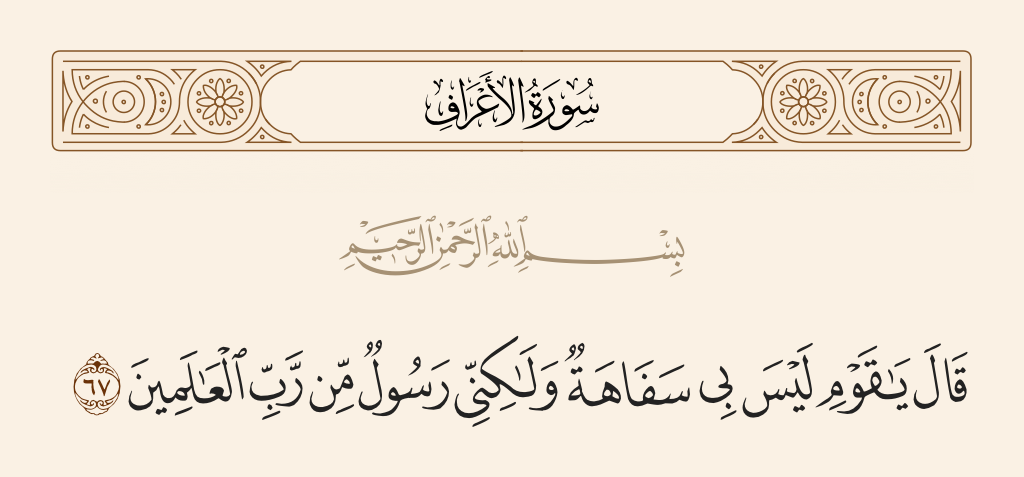 سُورَةُ الأَعْرَافِ
بِسْمِ ٱللَّهِ ٱلرَّحْمَٰنِ ٱلرَّحِيمِ
قَالَ يَـٰقَوْمِ لَيْسَ بِى سَفَاهَةٌ وَلَـٰكِنِّى رَسُولٌ مِّن رَّبِّ ٱلْعَـٰلَمِينَ ٦٧